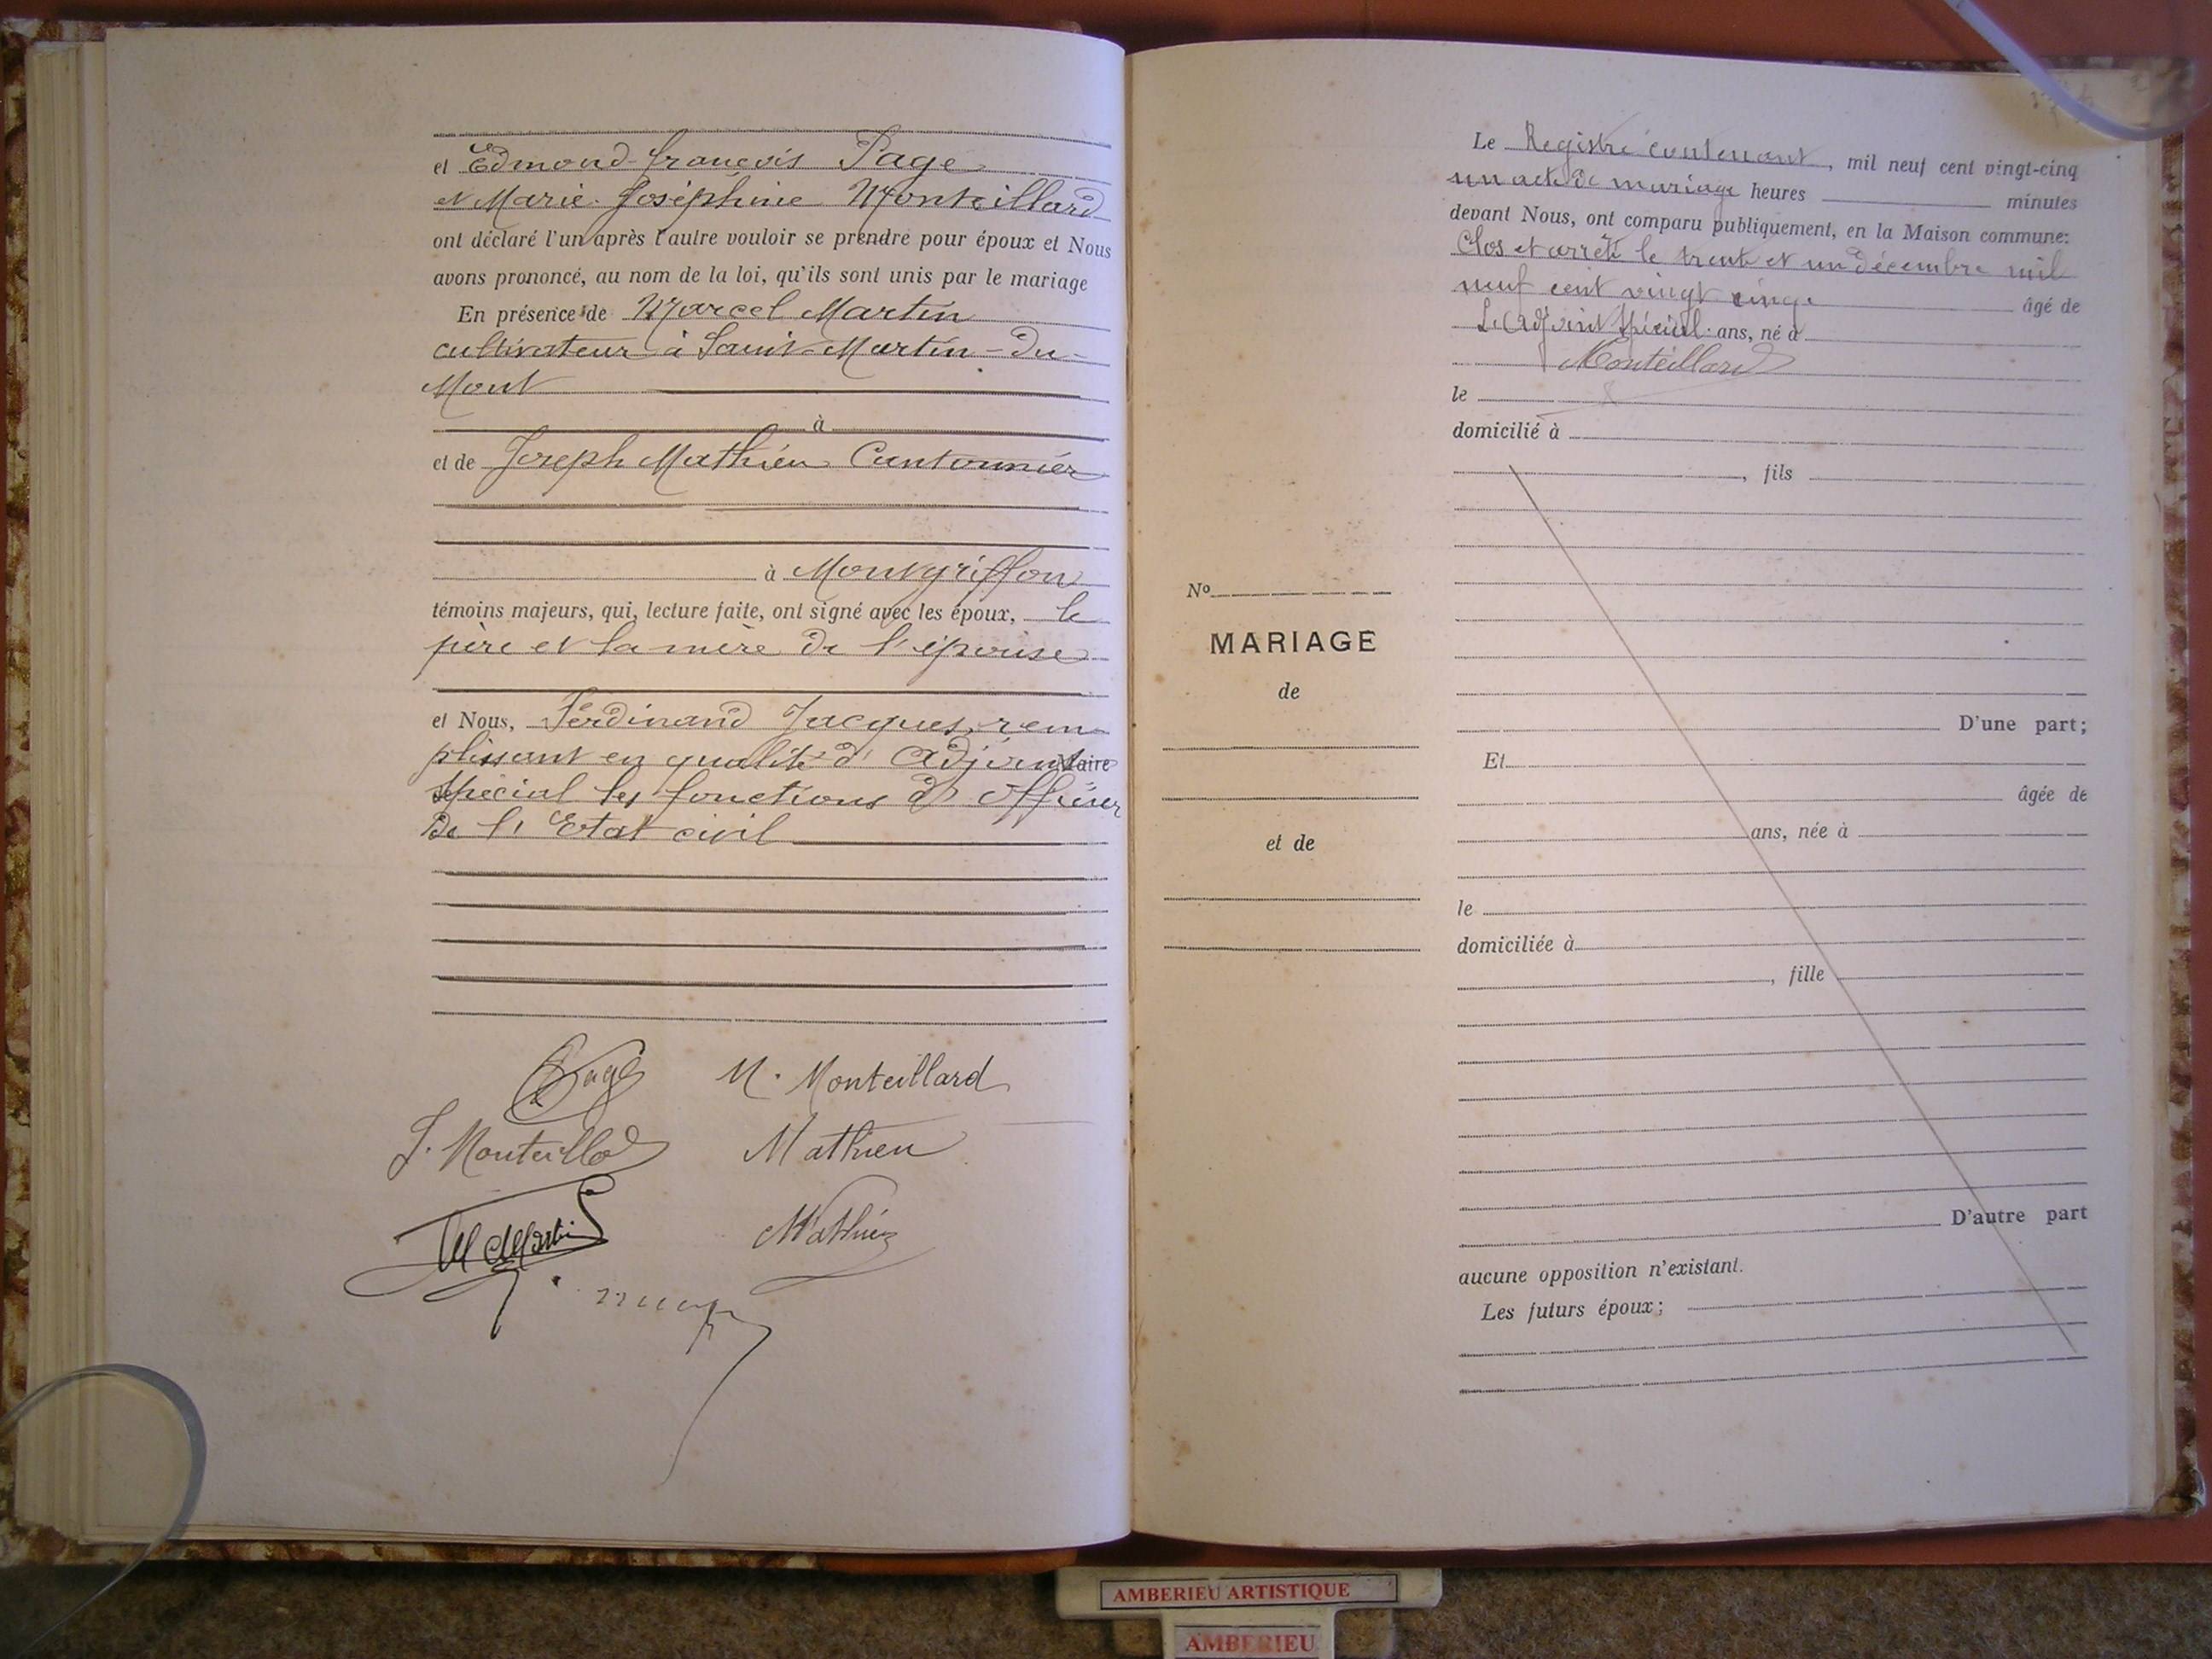 et Edmond-françois Page
et Marie-Joséphine Monteillard
ont déclaré l'un après l'autre vouloir se prendre pour époux et Nous
avons prononcé, au nom de la loi, qu'ils sont unis par le mariage
En présence de Marcel Martin
cultivateur à Saint-Martin-du-
Mont
à
et de Joseph Mathieu Cantonnier
à Montgriffon
témoins majeurs, qui, lecture faite, ont signé avec les époux, le
père et la mère de l'épouse
et Nous, Ferdinand Jacques, rem-
plissant en qualité d'Adjoint Maire
spécial les fonctions d'officier
de l'Etat civil
Page M. Monteillard
J. Monteillard Mathieu
M Martin Mathieu
Le Registre contenant, mil neuf cent vingt-cinq
un acte de mariage heures minutes
devant Nous, ont comparu publiquement, en la Maison commune:
Clos et arrêté le trente et un décembre mil
neuf cent vingt cinq. âgé de
L'Adjoint Spécial. ans, né à
Monteillard
le
domicilié à
, fils
D'une part;
Et
âgée de
ans, née à
le
domiciliée à
, fille
D'autre part
aucune opposition n'existant.
Les futurs époux;
No
MARIAGE
de
et de
AMBERIEU ARTISTIQUE
AMBERIEU